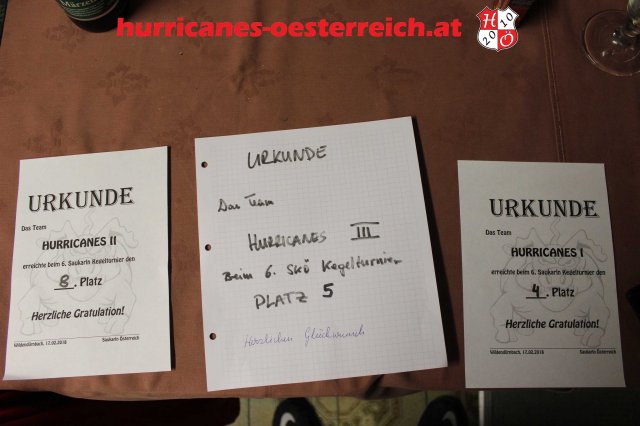 hurricanes-oesterreich.at
H
20 10
Ö
Märzen
URKUNDE
Das Team
HURRICANES II
erreichte beim 6. Saukarln Kegelturnier den
8. Platz
Herzliche Gratulation!
Wildendürnbach, 17.02.2018 Saukarln Österreich
URKUNDE
Das Team
HURRICANES III
Beim 6. SKÖ Kegelturnier
PLATZ 5
Herzlichen Glückwunsch
URKUNDE
Das Team
HURRICANES I
erreichte beim 6. Saukarln Kegelturnier den
4. Platz
Herzliche Gratulation!
Wildendürnbach, 17.02.2018 Saukarln Österreich